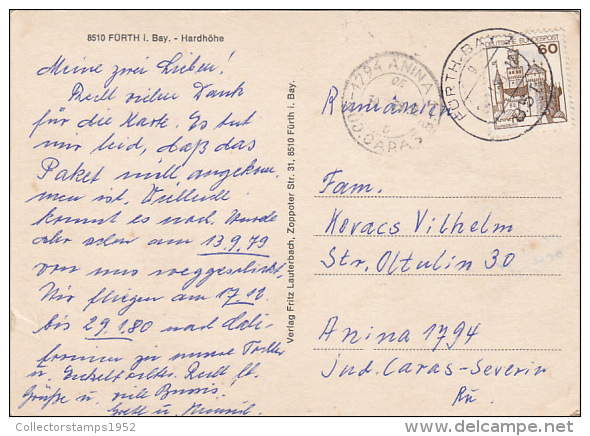 8510 FÜRTH i. Bay. - Hardhöhe
Meine zwei Lieben!
Recht vielen Dank
für die Karte. Es tut
mir leid, daß das
Paket nicht angekom-
men ist. Vielleicht
kommt es noch. Wurde
aber schon am 13.9.79
von uns weggeschickt.
Wir fliegen am 17.12
bis 29.1.80 nach Cali-
fornien zu unserer Tochter
u. Enkeltochter. Recht lb.
Grüße u. viele Bussis
Gretl u.
Verlag Fritz Lauterbach, Zoppoter Str. 31, 8510 Fürth i. Bay.
1794 ANINA
JUD. CARAS
FÜRTH, BAY
DEUTSCHE BUNDESPOST
60
Rumänien
Fam.
Kovacs Vilhelm
Str. Oltulin 30
Anina 1794
Jud. Caras-Severin
Ru.
Collectorstamps1952